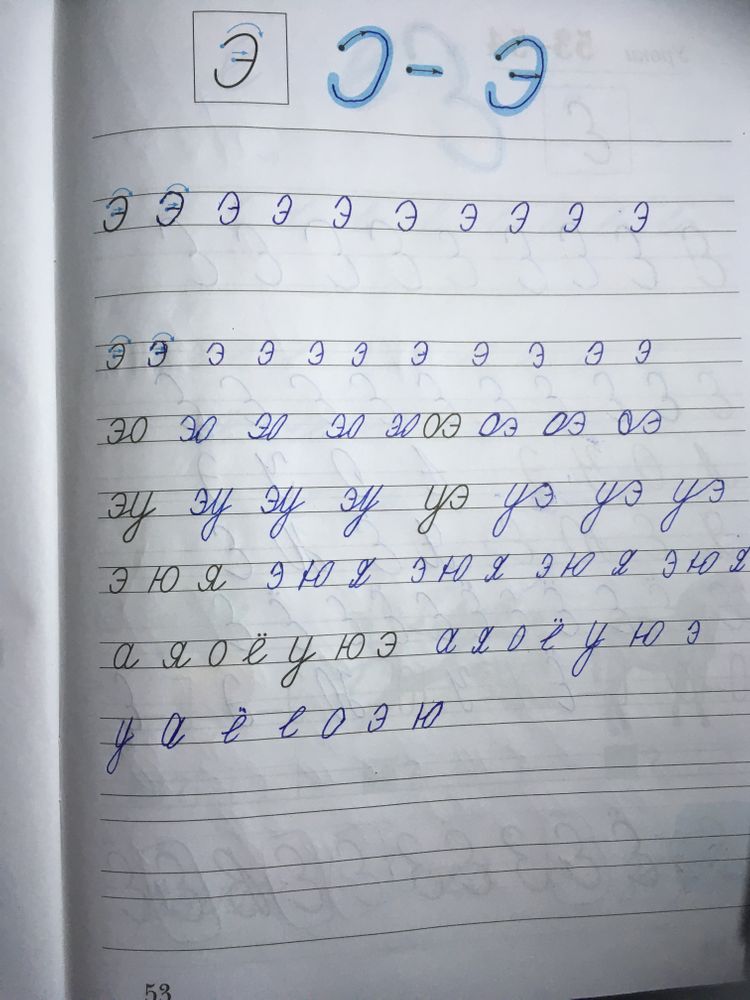 э Э - Э
э э э э э э э э э э
э э э э э э э э э э э
эо эо эо эо эо оэ оэ оэ оэ
эу эу эу эу уэ уэ уэ уэ
э ю я э ю я э ю я э ю я э ю я
а я о ё у ю э а я о ё у ю э
у а ё е о э ю
53